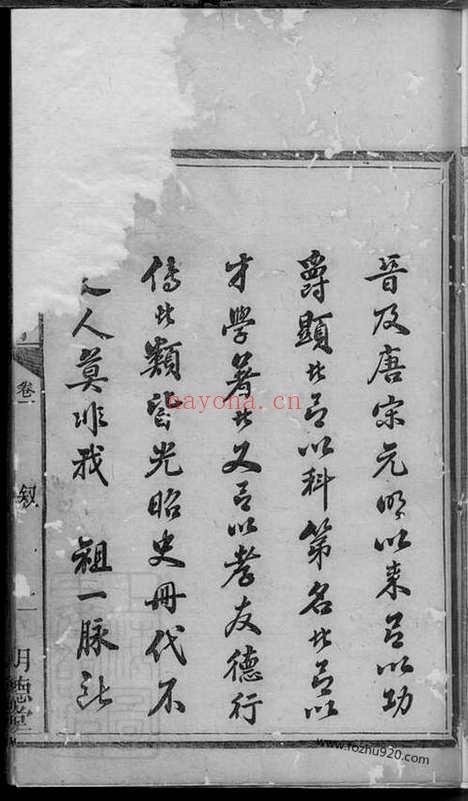 晉及唐宋元明以来有以功
爵顯者有以科第名者有以
才學著者又有以孝友德行
傳者類皆光昭史冊代不
乏人莫非我 祖一脉
卷一 叙 一 明德堂
nayona.cn
www.fozhu920.com